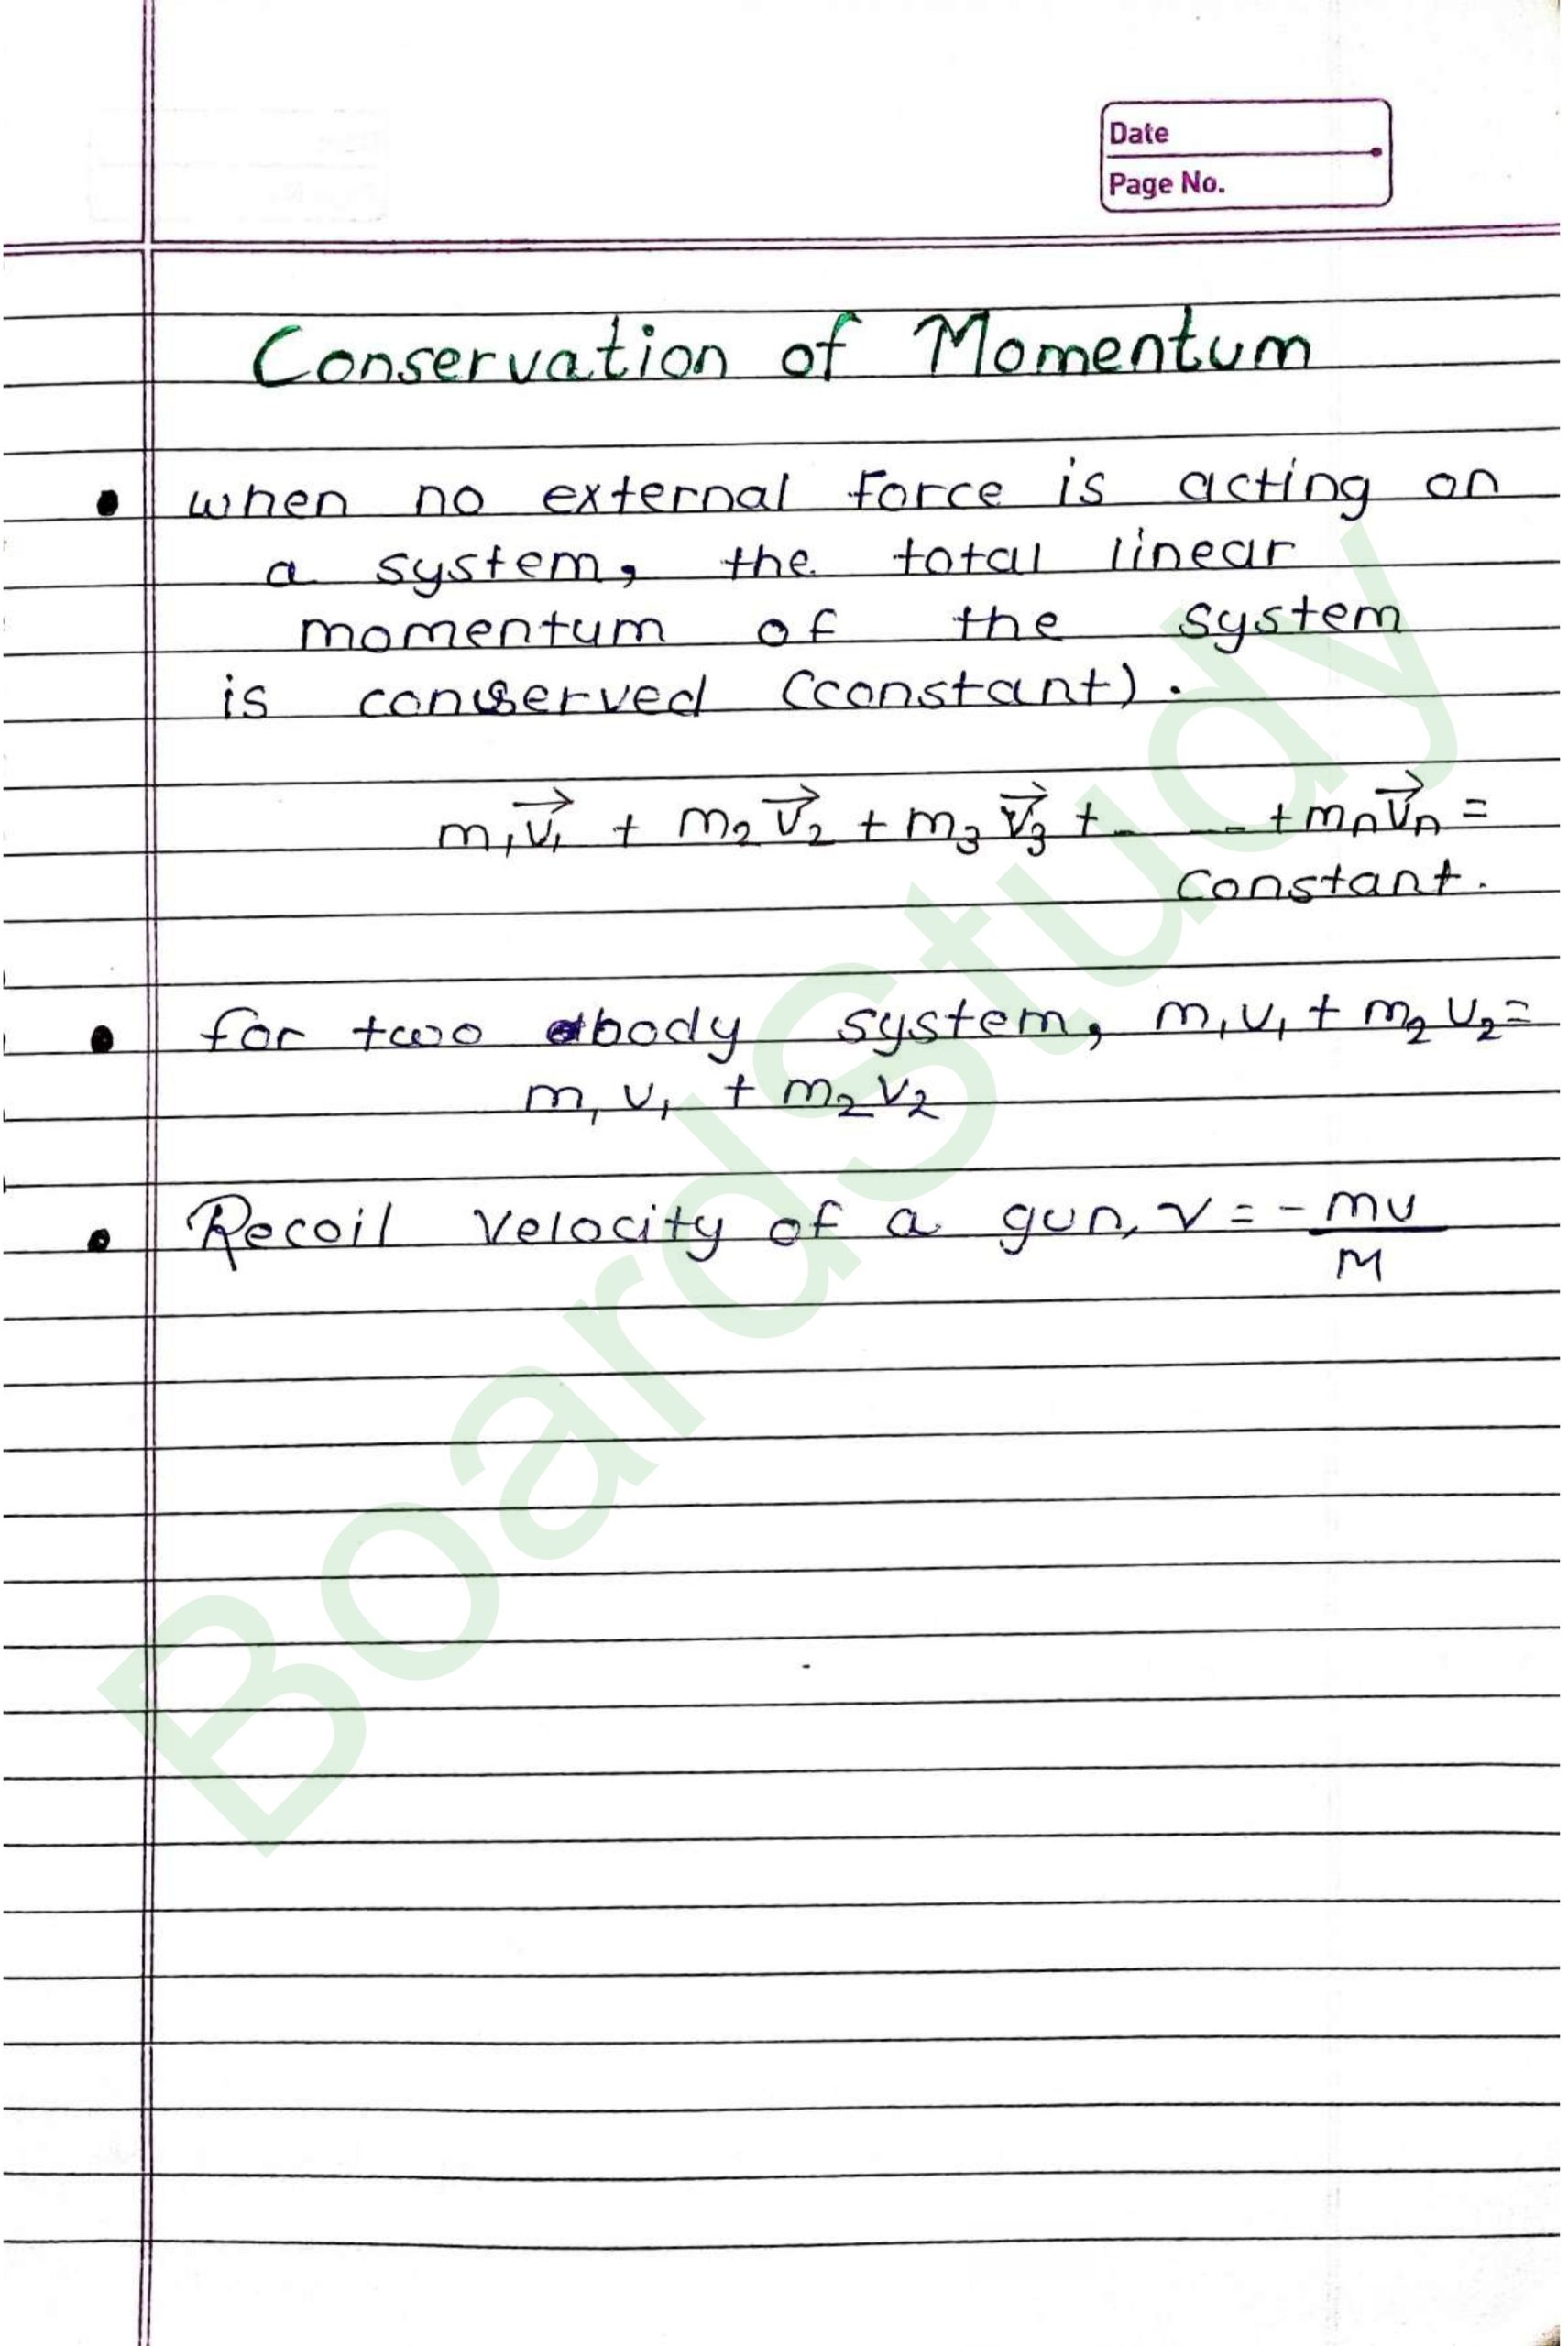 Date
Page No.
Conservation of Momentum
• when no external force is acting on
a system, the total linear
momentum of the system
is conserved (constant).
m₁v⃗₁ + m₂v⃗₂ + m₃v⃗₃ + - - - + mₙv⃗ₙ =
constant.
• for two body system, m₁u₁ + m₂u₂ =
m₁v₁ + m₂v₂
• Recoil velocity of a gun, v = -mu/M
BoardStudy